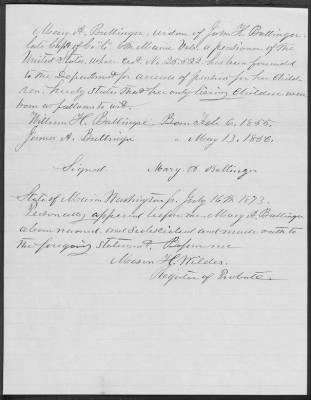 Mary A. Bullinger, widow of John H. Bullinger
late Capt of Co "C" 6th Maine Vols. a pensioner of the
United States, whose cert. No. 25.523. has been forwarded
to the Department for arrears of pension for her child
ren, hereby states that her only living children were
born as follows to wit.
William H. Bullinger Born Feb 6. 1855.
James A. Bullinger " May 13. 1856.
Signed Mary A. Bullinger
State of Maine Washington ss. July 16th 1873.
Personally appeared before me Mary A. Bullinger
above named and subscribed and made oath to
the foregoing statement. Before me
Mason H. Wilder
Register of Probate